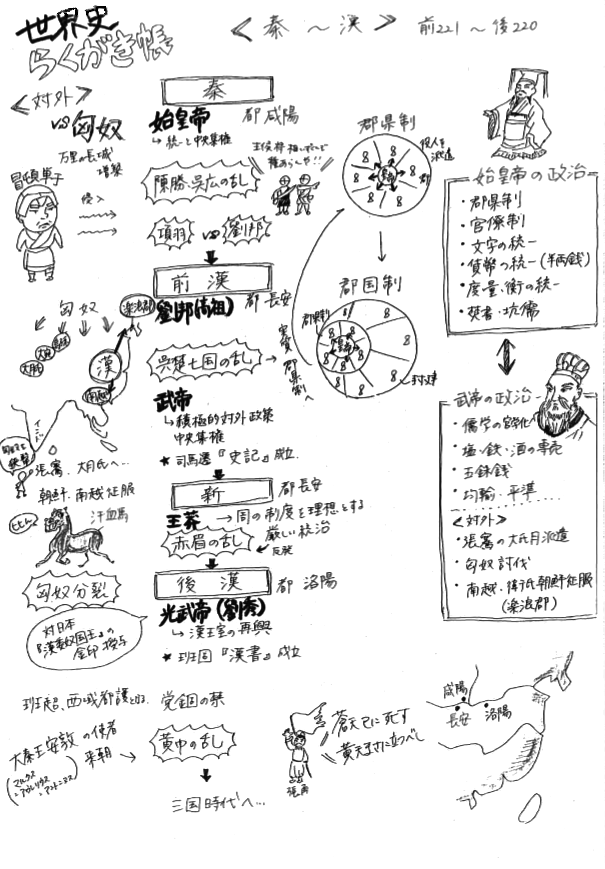 世界史
らくがき帳
＜秦～漢＞ 前221～後220
＜対外＞
VS匈奴
万里の長城
増築
冒頓単于
侵入
秦
始皇帝 都 咸陽
↳統一と中央集権
陳勝・呉広の乱
王侯将相いずくんぞ
種あらんや!!
項羽 VS 劉邦
郡県制
役人を
派遣
郡
前漢
劉邦(高祖) 都 長安
呉楚七国の乱 →
実質 郡県制へ
郡国制
郡県制
封建
匈奴
楽浪郡
漢
大宛
大月氏
南越
インド
武帝
↳積極的対外政策
中央集権
★ 司馬遷『史記』成立.
張騫 大月氏へ…
朝鮮・南越征服
汗血馬
ヒヒーン
匈奴分裂
新 都 長安
王莽 →周の制度を理想とする
厳しい統治
赤眉の乱 ↙反発
後漢 都 洛陽
光武帝(劉秀)
↳漢王室の再興
★ 班固『漢書』成立
対日本
『漢委奴国王』の
金印授与
班超、西域都護となる. 党錮の禁
大秦王安敦の使者
来朝 →
(マルクス
=アウレリウス
=アントニヌス)
黄巾の乱
張角
蒼天已に死す
黄天まさに立つべし
三国時代へ…
始皇帝の政治
・郡県制
・官僚制
・文字の統一
・貨幣の統一(半両銭)
・度量・衡の統一
・焚書・坑儒
武帝の政治
・儒学の官学化
・塩・鉄・酒の専売
・五銖銭
・均輸・平準
＜対外＞
・張騫の大月氏派遣
・匈奴討伐
・南越・衛氏朝鮮征服
(楽浪郡)
咸陽
長安 洛陽